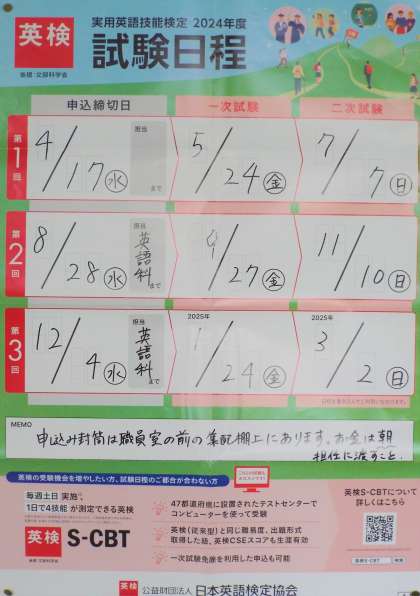 英検
後援：文部科学省
実用英語技能検定 2024年度
試験日程
申込締切日 一次試験 二次試験
第1回 4/17(水) 担当 まで 5/24(金) 7/7(日)
第2回 8/28(水) 担当 英語科まで 9/27(金) 11/10(日)
第3回 12/4(水) 担当 英語科まで 2025年 1/24(金) 2025年 3/2(日)
MEMO
申込み封筒は職員室の前の集配棚上にあります。お金は朝
担任に渡すこと。
英検の受験機会を増やしたい方、試験日程のご都合が合わない方
毎週土日実施
1日で4技能が測定できる英検
英検 S-CBT
47都道府県に設置されたテストセンターで
コンピューターを使って受験
英検(従来型)と同じ難易度、出題形式
取得した級、英検CSEスコアも生涯有効
一次試験免除を利用した申込も可能
英検S-CBTについて
詳しくはこちら
英検 公益財団法人 日本英語検定協会